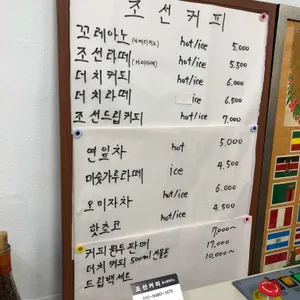 조선커피
꼬레아노 (아메리카노) hot/ice 5.000
조선라떼 (카페라떼) hot/ice 5.500
더치커피 hot/ice 6.000
더치라떼 ice 6.500
조선드립커피 hot/ice 7.000
연잎차 hot 5.000
미숫가루라떼 ice 4.500
오미자차 hot/ice 6.000
핫초코 hot/ice 4.500
커피원두판매 7,000~
더치커피 500ml 선물용 17,000
드립백세트 10,000~
조선커피